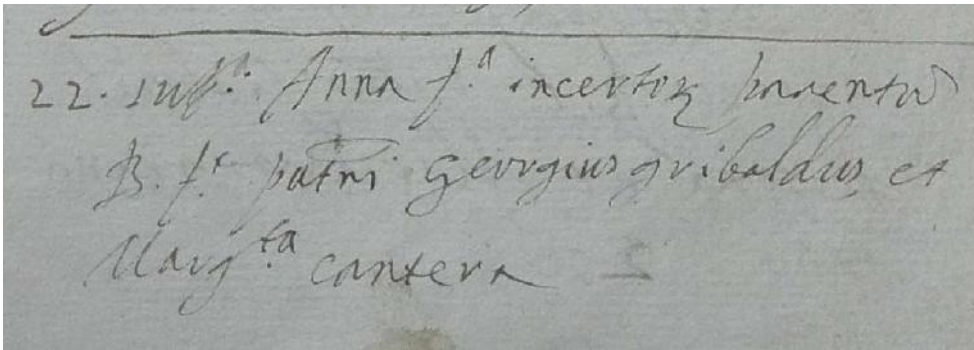 22. Anna f.a incertoꝝ parentū
B. f.t patrni Georgius gribaldus, et
Marg.ta cantera